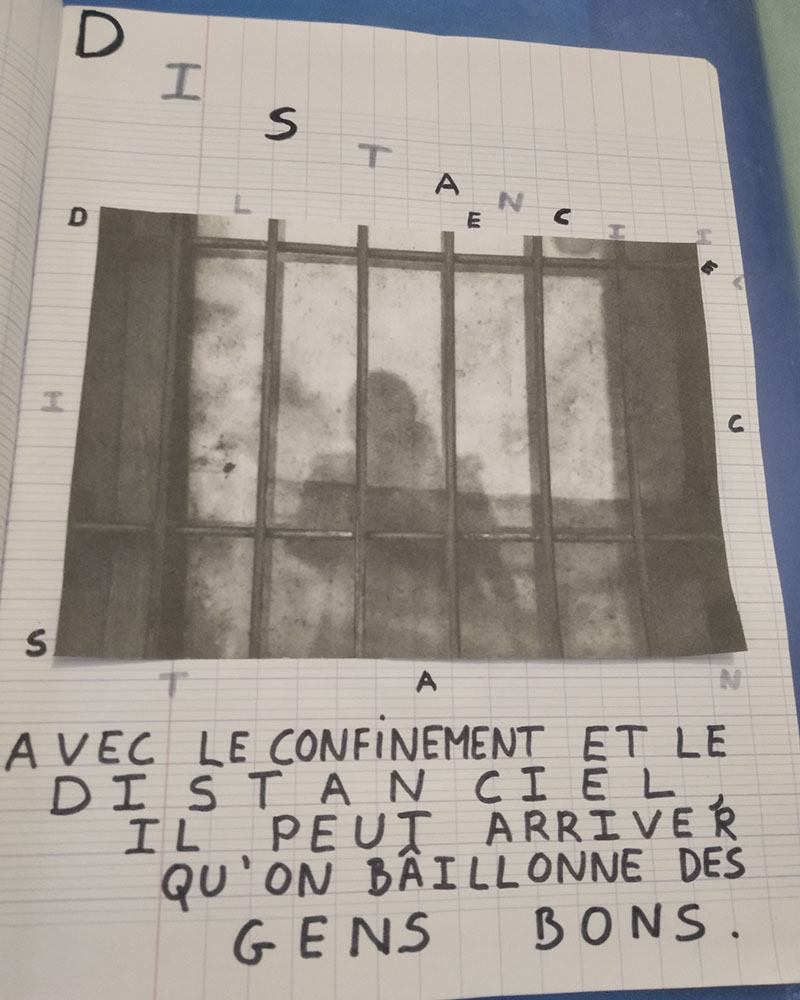 DISTANCIEL
DISTANCIEL
AVEC LE CONFINEMENT ET LE
DISTANCIEL,
IL PEUT ARRIVER
QU'ON BÂILLONNE DES
GENS BONS.